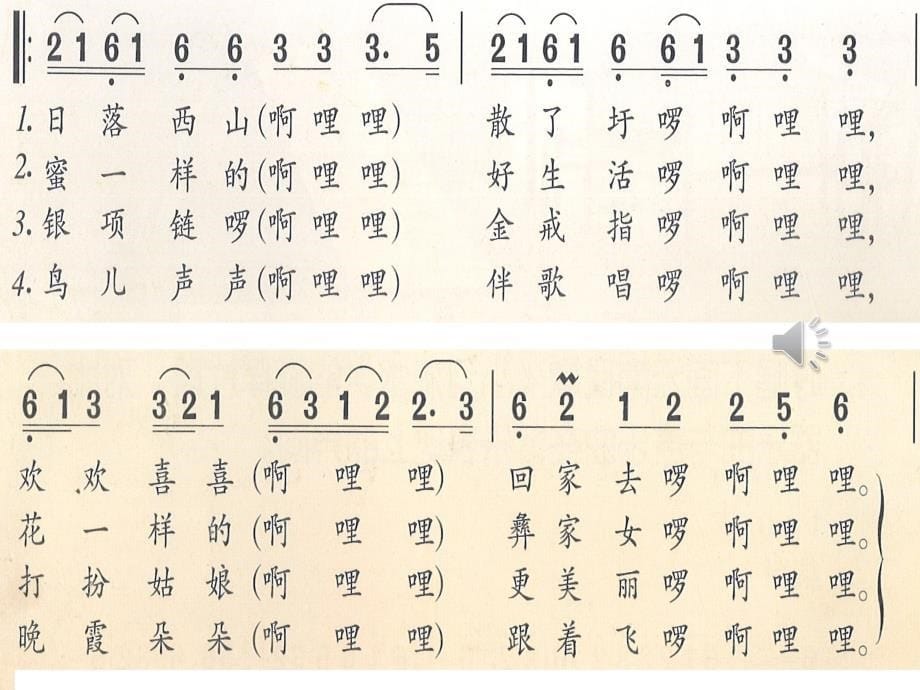 2161 6 6 3 3 3. 5 2161 6 61 3 3 3
1. 日 落 西 山(啊 哩 哩) 散 了 圩 啰 啊 哩 哩,
2. 蜜 一 样 的(啊 哩 哩) 好 生 活 啰 啊 哩 哩,
3. 银 项 链 啰(啊 哩 哩) 金 戒 指 啰 啊 哩 哩,
4. 鸟 儿 声 声(啊 哩 哩) 伴 歌 唱 啰 啊 哩 哩,
6 1 3 3 2 1 6 3 1 2 2. 3 6 2 1 2 2 5 6
欢 欢 喜 喜 (啊 哩 哩) 回 家 去 啰 啊 哩 哩。
花 一 样 的 (啊 哩 哩) 彝 家 女 啰 啊 哩 哩。
打 扮 姑 娘 (啊 哩 哩) 更 美 丽 啰 啊 哩 哩。
晚 霞 朵 朵 (啊 哩 哩) 跟 着 飞 啰 啊 哩 哩。